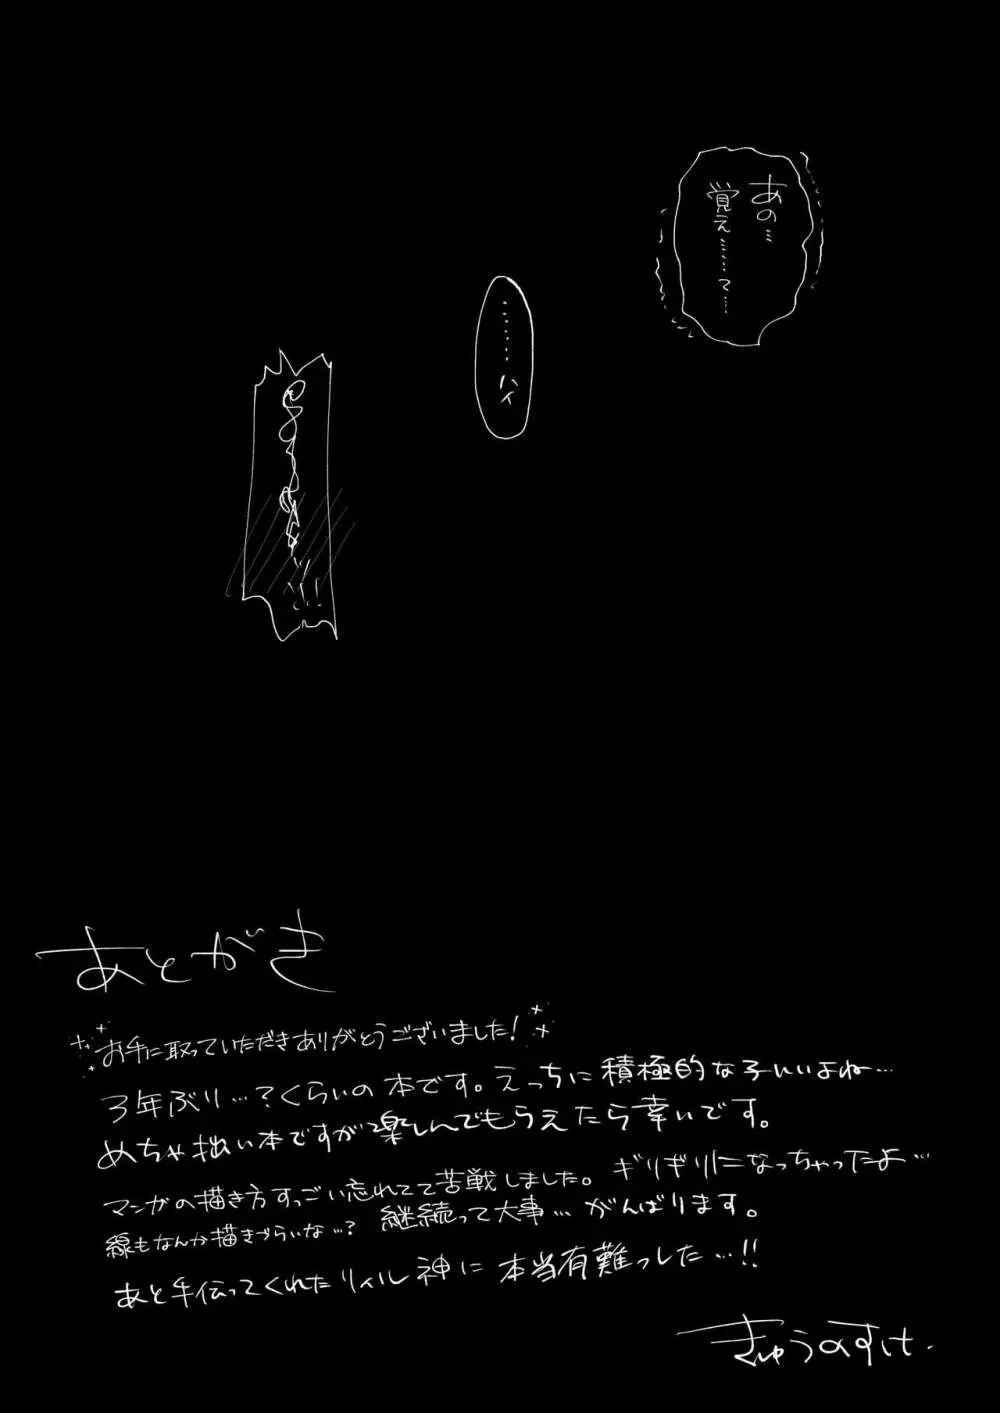 あの…
覚え……て…
……ハイ
あとがき
お手に取っていただきありがとうございました!
3年ぶり…?くらいの本です。えっちに積極的な子いいよね…
めちゃ拙い本ですが楽しんでもらえたら幸いです。
マンガの描き方すっごい忘れてて苦戦しました。ギリギリになっちゃったよ…
線もなんか描きづらいな…? 継続って大事…がんばります。
あと手伝ってくれたリィル神に本当有難っした…!!
きゅうのすけ.